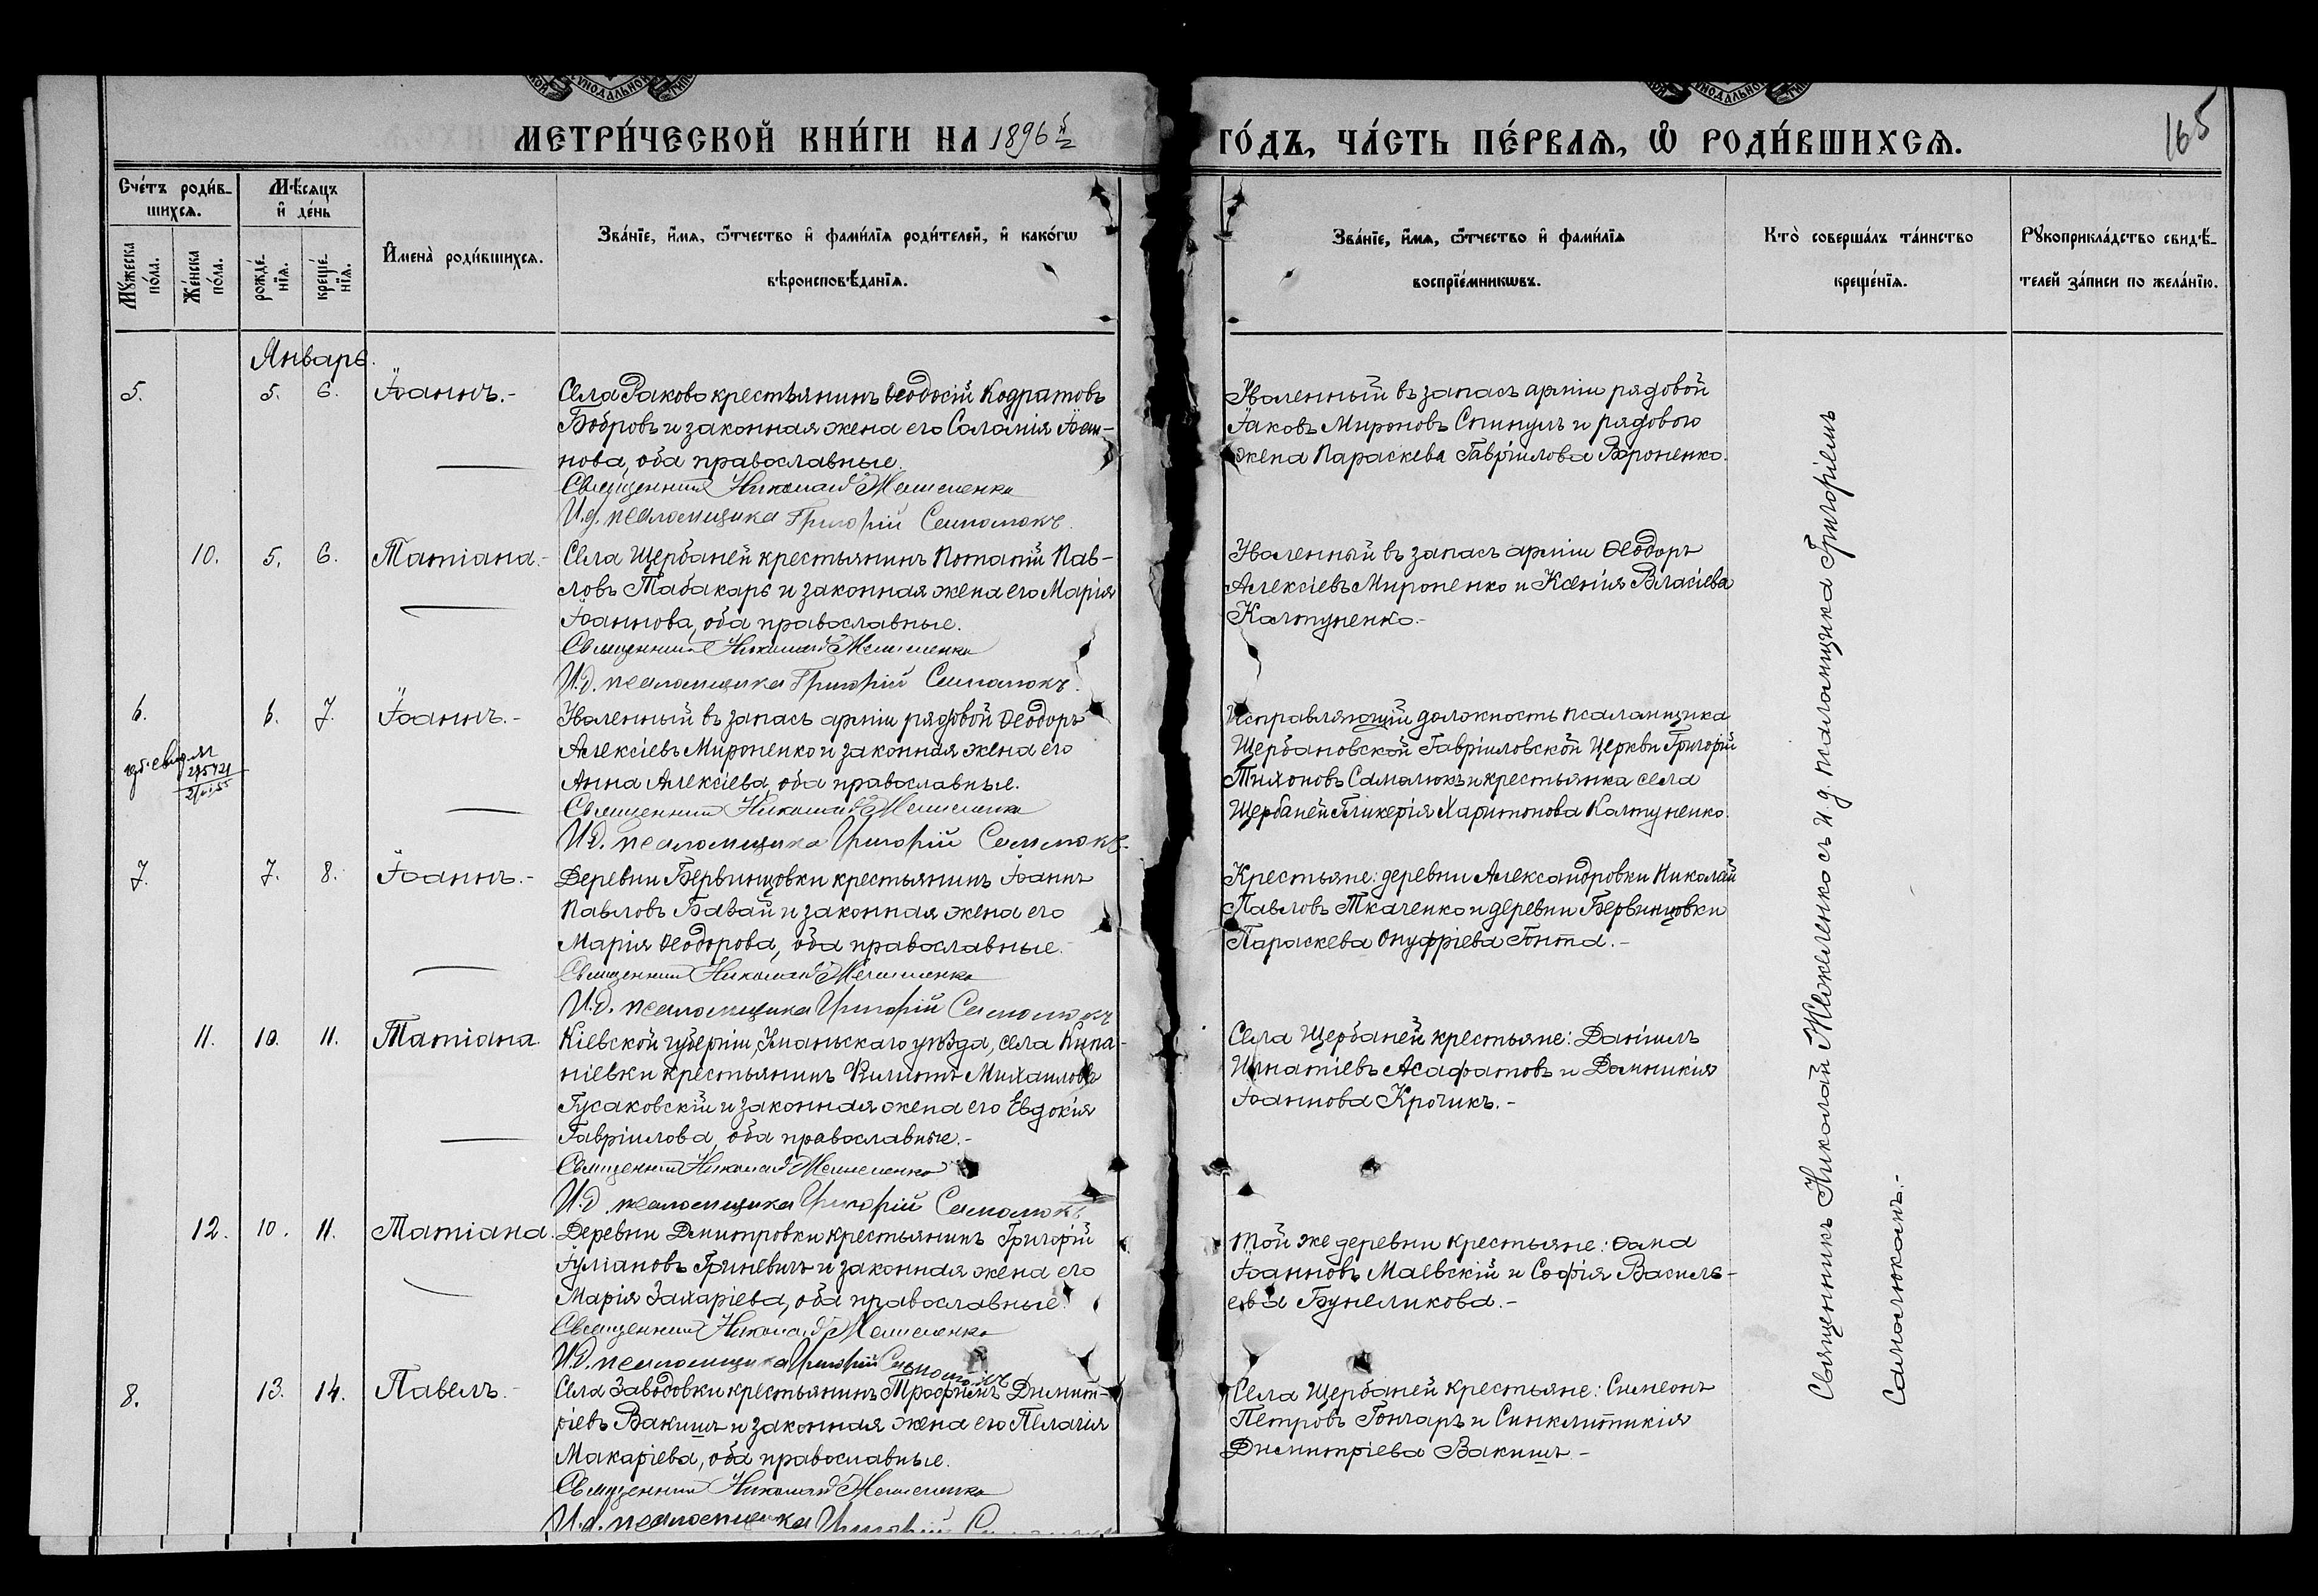 МЕТРИ́ЧЕСКОЙ КНИ́ГИ НА 1896 й
ГО́ДЪ, ЧА́СТЬ ПЕ́РВАѦ, Ѡ҆ РОДИ́ВШИХСѦ.
165
Сче́тъ роди́в-
шихсѧ.
Мѣ́сѧцъ
и҆ де́нь
Мꙋ́жеска
по́ла.
Же́нска
по́ла.
рожде́-
нїѧ.
креще́-
нїѧ.
И҆мена̀ роди́вшихсѧ.
Зва́нїе, и҆́мѧ, ѻ҆́тчество и҆ фами́лїѧ роди́телей, и҆ како́гѡ
вѣроисповѣ́данїѧ.
Зва́нїе, и҆́мѧ, ѻ҆́тчество и҆ фами́лїѧ
воспрїе́мникѡвъ.
Кто̀ соверша́лъ та́инство
креще́нїѧ.
Рꙋкоприкла́дство свидѣ́-
телей за́писи по жела́нїю.
Январь.
5. 5. 6. Іоаннъ.-
Села Раково крестьянинъ Ѳеодосій Кодратовъ
Бобровъ и законная жена его Саломія Іоан-
нова, оба православные.
Священникъ Николай
И.д. псаломщика Григорій Самолюкъ.
Уволенный въ запасъ арміи рядовой
Іаковъ Мироновъ Спинулъ и рядового
жена Параскева Гавріилова Вороненко.
10. 5. 6. Татіана.-
Села Щербаней крестьянинъ Потапій Пав-
ловъ Табакарь и законная жена его Марія
Іоаннова, оба православные.
Священникъ Николай
И.д. псаломщика Григорій Самолюкъ.
Уволенный въ запасъ арміи Ѳеодоръ
Алексіевъ Мироненко и Ксенія Власіева
Калтуненко.-
6. 6. 7. Іоаннъ.-
Уволенный въ запасъ арміи рядовой Ѳеодоръ
Алексіевъ Мироненко и законная жена его
Анна Алексіева, оба православные.
Священникъ Николай
И.д. псаломщика Григорій Самолюкъ.
Исправляющій должность псаломщика
Щербановской Гавріиловской Церкви Григорій
Тихоновъ Самолюкъ и крестьянка села
Щербаней Гликерія Харитонова Калтуненко.
7. 7. 8. Іоаннъ.-
Деревни Бервинцовки крестьянинъ Іоаннъ
Павловъ Бабай и законная жена его
Марія Ѳеодорова, оба православные.-
Священникъ Николай
И.д. псаломщика Григорій Самолюкъ
Крестьяне: деревни Александровки Николай
Павловъ Ткаченко и деревни Бервинцовки
Параскева Онуфріева Гонта.-
11. 10. 11. Татіана.
Кіевской губерніи, Уманьскаго уѣзда, села
крестьянинъ Филиппъ Михаиловъ
Гусаковскій и законная жена его Евдокія
Гавріилова, оба православные.-
Священникъ Николай
И.д. псаломщика Григорій Самолюкъ
Села Щербаней крестьяне: Даніилъ
Игнатіевъ Асафатовъ и Домникія
Іоаннова Крочикъ.-
12. 10. 11. Татіана.
Деревни Дмитровки крестьянинъ Григорій
Іуліановъ Гриневичъ и законная жена его
Марія Захаріева, оба православные.
Священникъ Николай
И.д. псаломщика Григорій Самолюкъ
Той же деревни крестьяне: Ѳома
Іоанновъ Маевскій и Софія Василь-
ева Бунеликова.-
8. 13. 14. Павелъ.-
Села Заводовки крестьянинъ Трофимъ Димит-
ріевъ Вакишъ и законная жена его Пелагія
Макаріева, оба православные.
Священникъ Николай
И.д. псаломщика Григорій
Села Щербаней крестьяне: Симеонъ
Петровъ Гончаръ и Синклитикія
Димитріева Вакишъ.-
Священникъ Николай съ И.д. псаломщика Григоріемъ
Самолюкомъ.-